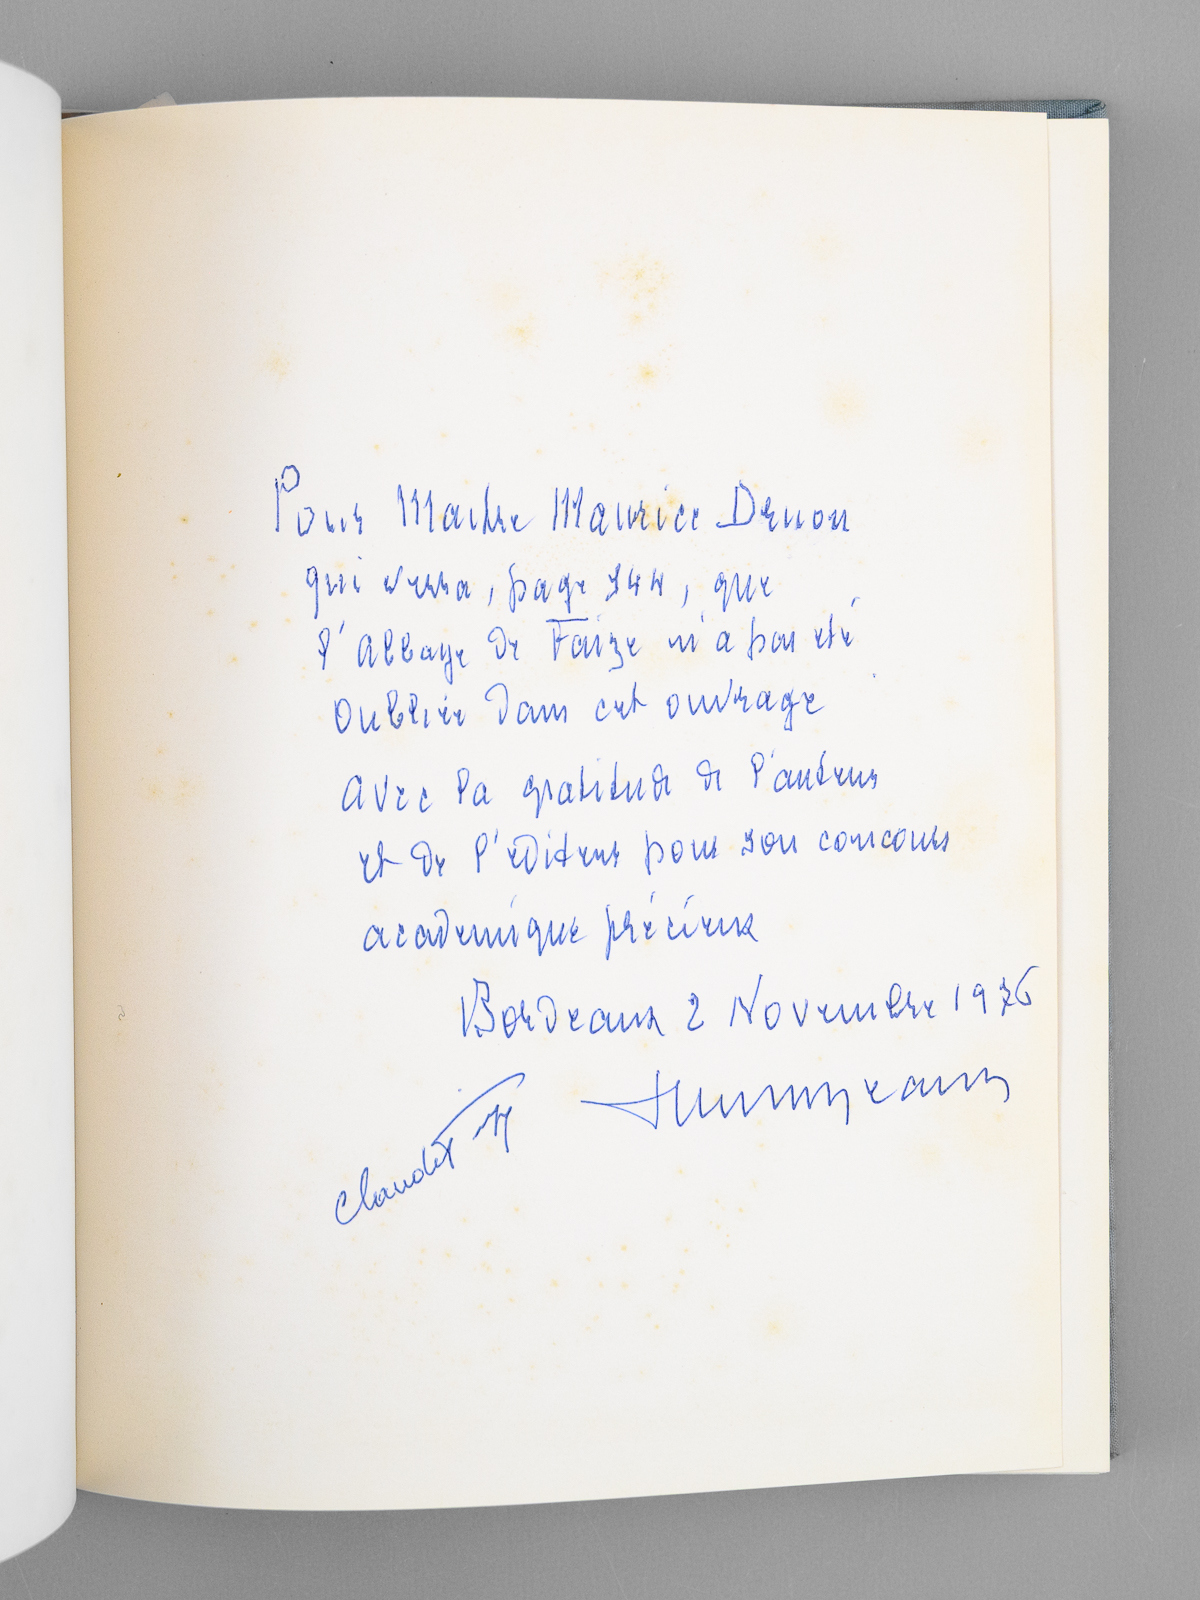 Pour Maitre Maurice Druon
qui verra, page 344, que
l'Abbaye de Faize n'a pas été
oubliée dans cet ouvrage
avec la gratitude de l'auteur
et de l'éditeur pour son concours
académique précieux
Bordeaux 2 Novembre 1976
Claude